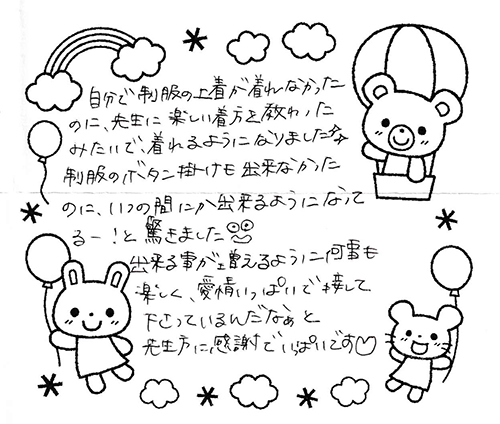 自分で制服の上着が着れなかった
のに、先生に楽しい着方を教わった
みたいで、着れるようになりましたな
制服のボタン掛けも出来なかった
のに、いつの間にか出来るようになって
るー！と驚きました
出来る事が増えるように何事も
楽しく、愛情いっぱいで接して
下さっているんだなぁと
先生方に感謝でいっぱいです♡